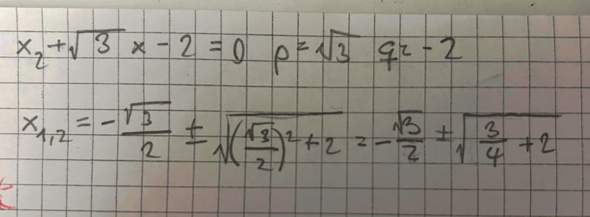 x₂ + √3 x - 2 = 0 p = √3 q = -2
x₁,₂ = - √3/2 ± √((√3/2)² + 2) = - √3/2 ± √(3/4 + 2)